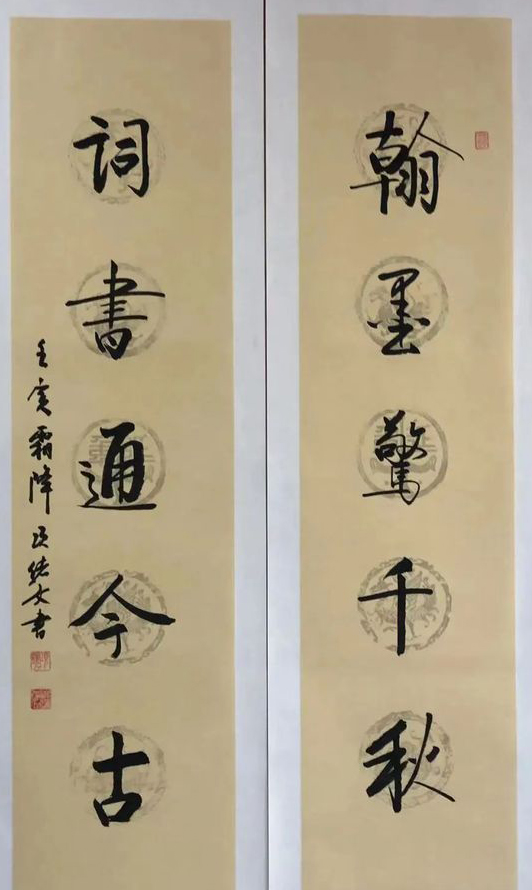 翰墨驚千秋
詞書通今古
壬寅霜降
女書